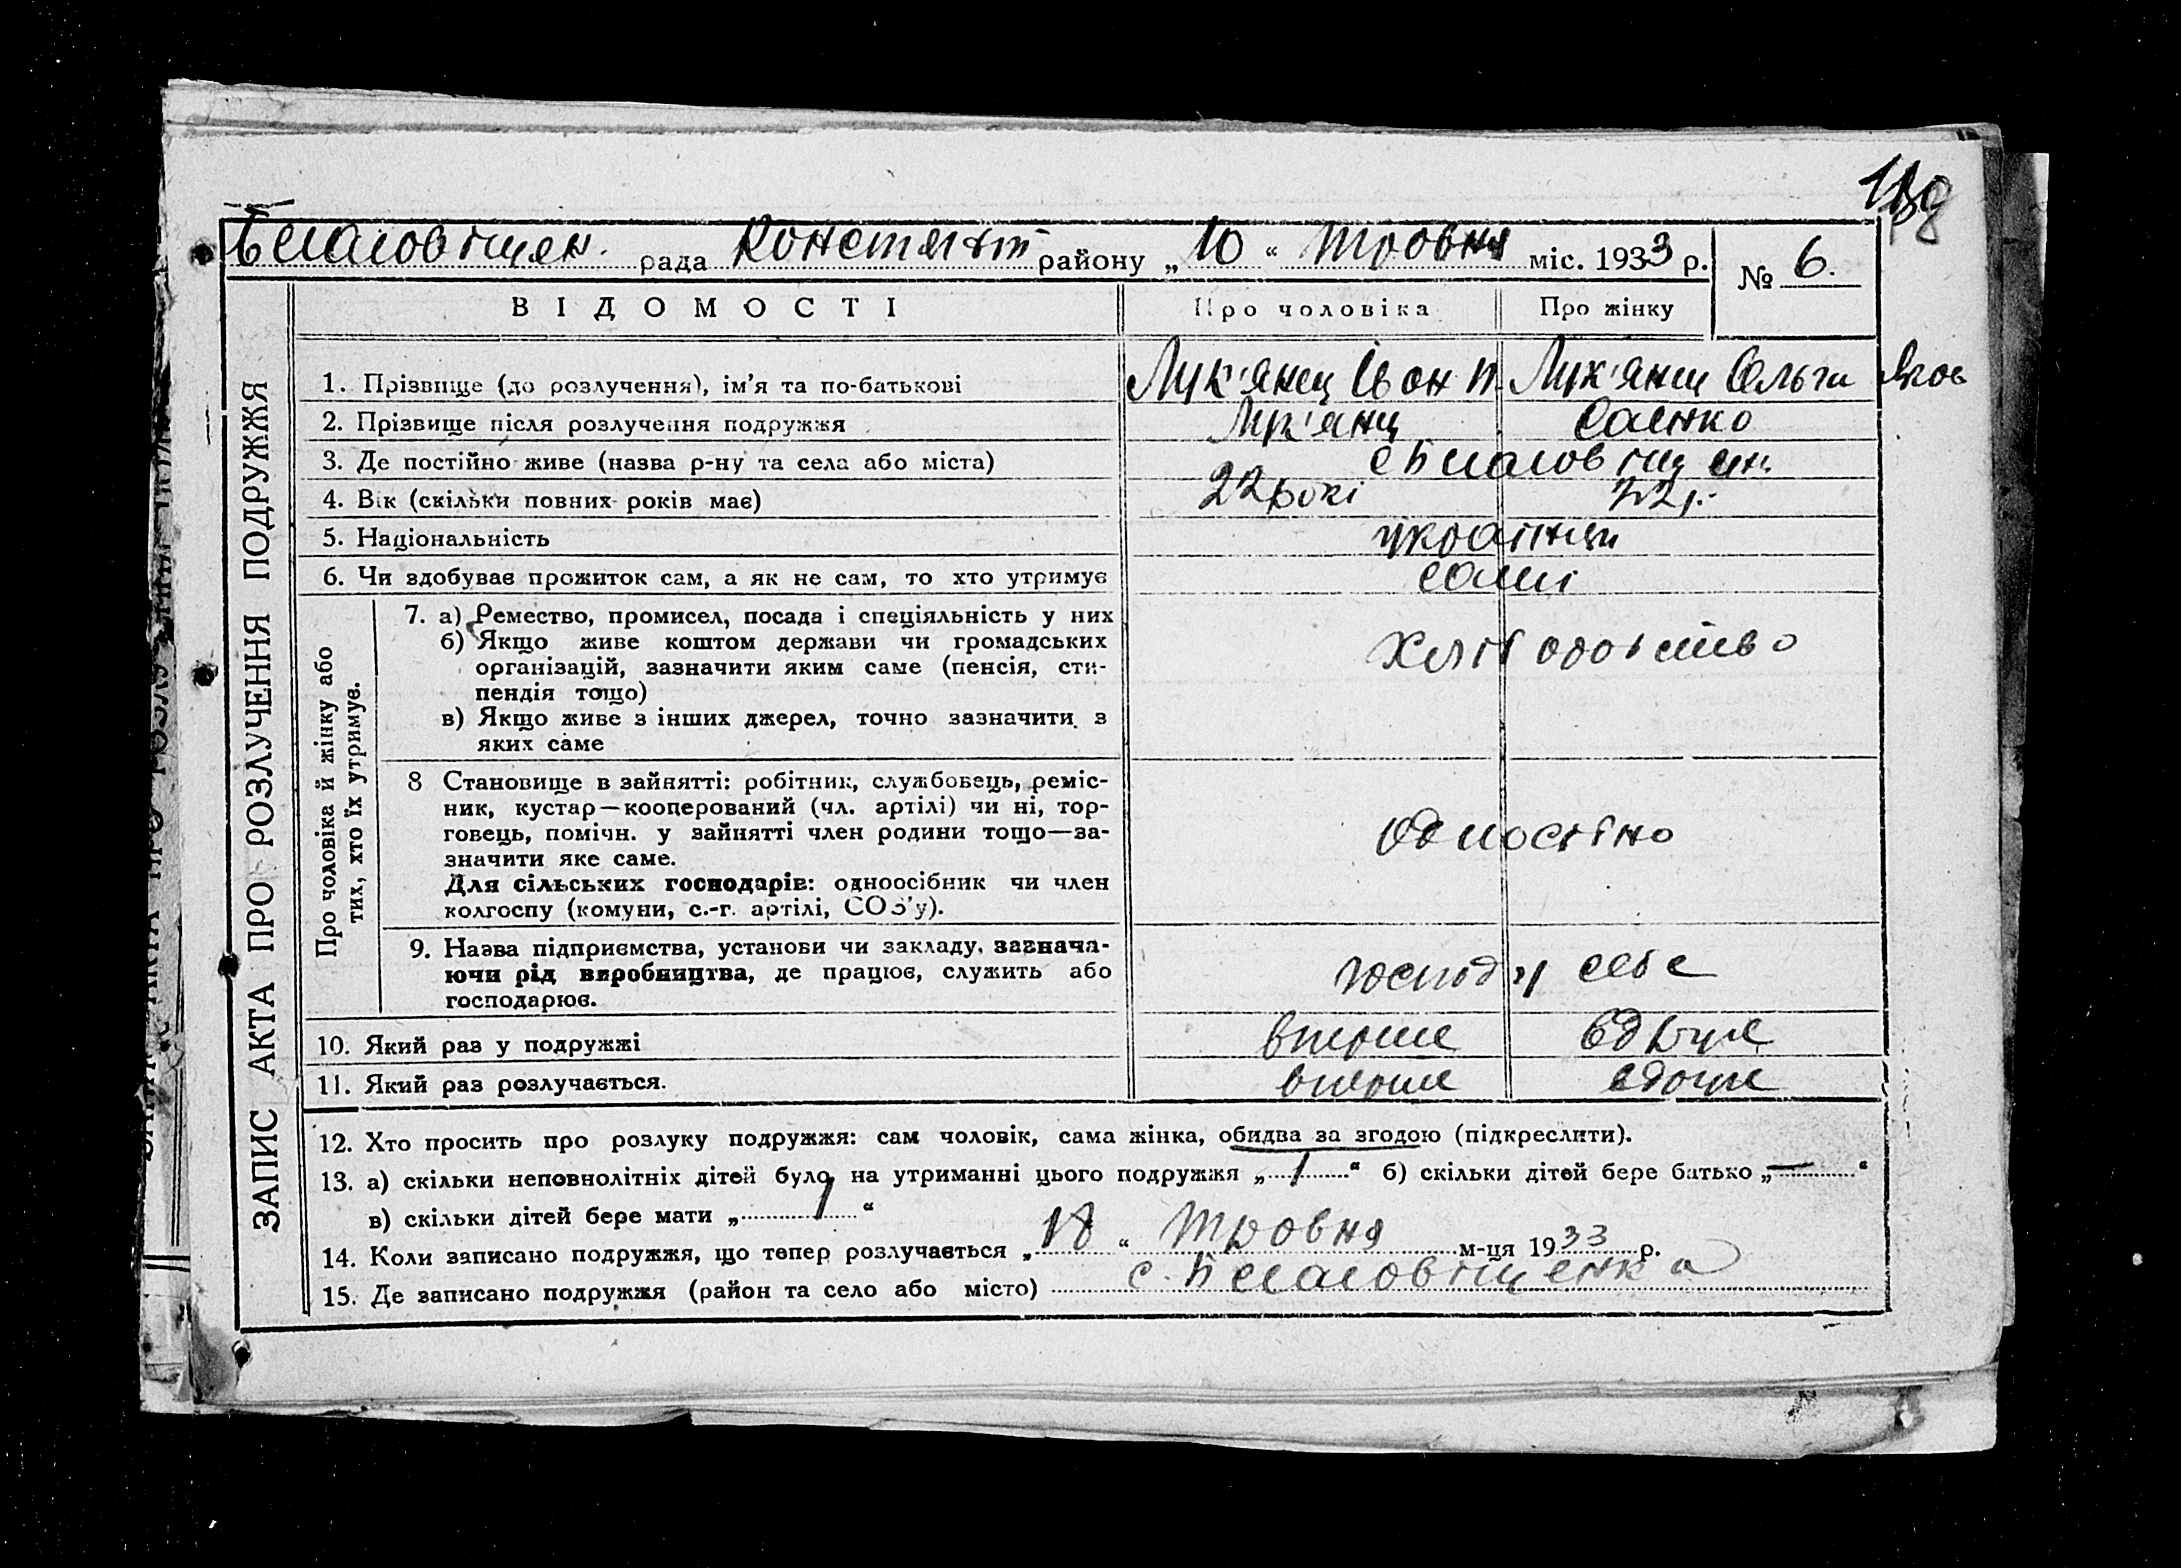 Благовіщен. рада Констянт району „10“ Тровня міс. 1933 р.
№ 6.
ЗАПИС АКТА ПРО РОЗЛУЧЕННЯ ПОДРУЖЖЯ
ВІДОМОСТІ Про чоловіка Про жінку
1. Прізвище (до розлучення), ім’я та по-батькові Лук'янец Іван П. Лук'янец Ольга Яков
2. Прізвище після розлучення подружжя Лук'янц Саенко
3. Де постійно живе (назва р-ну та села або міста) с Благовіщен.
4. Вік (скільки повних років має) 22 рокі 22 р.
5. Національність украінци
6. Чи здобуває прожиток сам, а як не сам, то хто утримує самі
Про чоловіка й жінку або тих, хто їх утримує.
7. а) Ремество, промисел, посада і спеціяльність у них
б) Якщо живе коштом держави чи громадських
організацій, зазначити яким саме (пенсія, сти-
пендія тощо)
в) Якщо живе з інших джерел, точно зазначити з
яких саме
Хліборобство
8 Становище в зайнятті: робітник, службовець, реміс-
ник, кустар—кооперований (чл. артілі) чи ні, тор-
говець, помічн. у зайнятті член родини тощо—за-
значити яке саме.
Для сільських господарів: одноосібник чи член
колгоспу (комуни, с.-г. артілі, СОЗ’у).
9. Назва підприємства, установи чи закладу, зазнача-
ючи рід виробництва, де працює, служить або
господарює.
господ у себе
10. Який раз у подружжі вперше вдруге
11. Який раз розлучається. вперше вдруге
12. Хто просить про розлуку подружжя: сам чоловік, сама жінка, обидва за згодою (підкреслити).
13. а) скільки неповнолітніх дітей було на утриманні цього подружжя „1“ б) скільки дітей бере батько „—“
в) скільки дітей бере мати „1“
14. Коли записано подружжя, що тепер розлучається „18“ Тровня м-ця 1933 р.
15. Де записано подружжя (район та село або місто) с. Благовіщенка